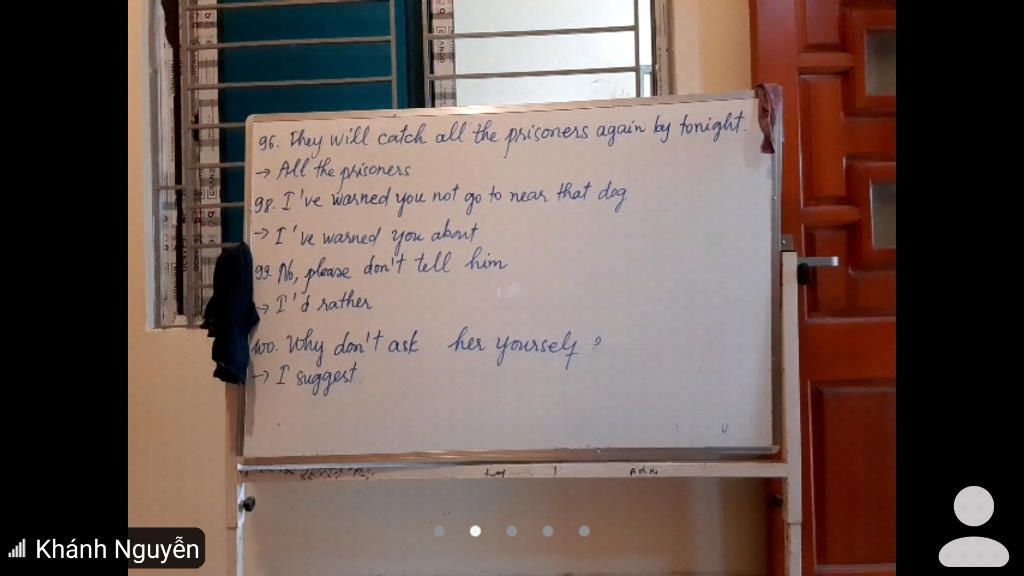 96. They will catch all the prisoners again by tonight.
→ All the prisoners
98. I've warned you not go to near that dog
→ I've warned you about
99. No, please don't tell him
→ I'd rather
100. Why don't ask her yourself ?
→ I suggest
Khánh Nguyễn